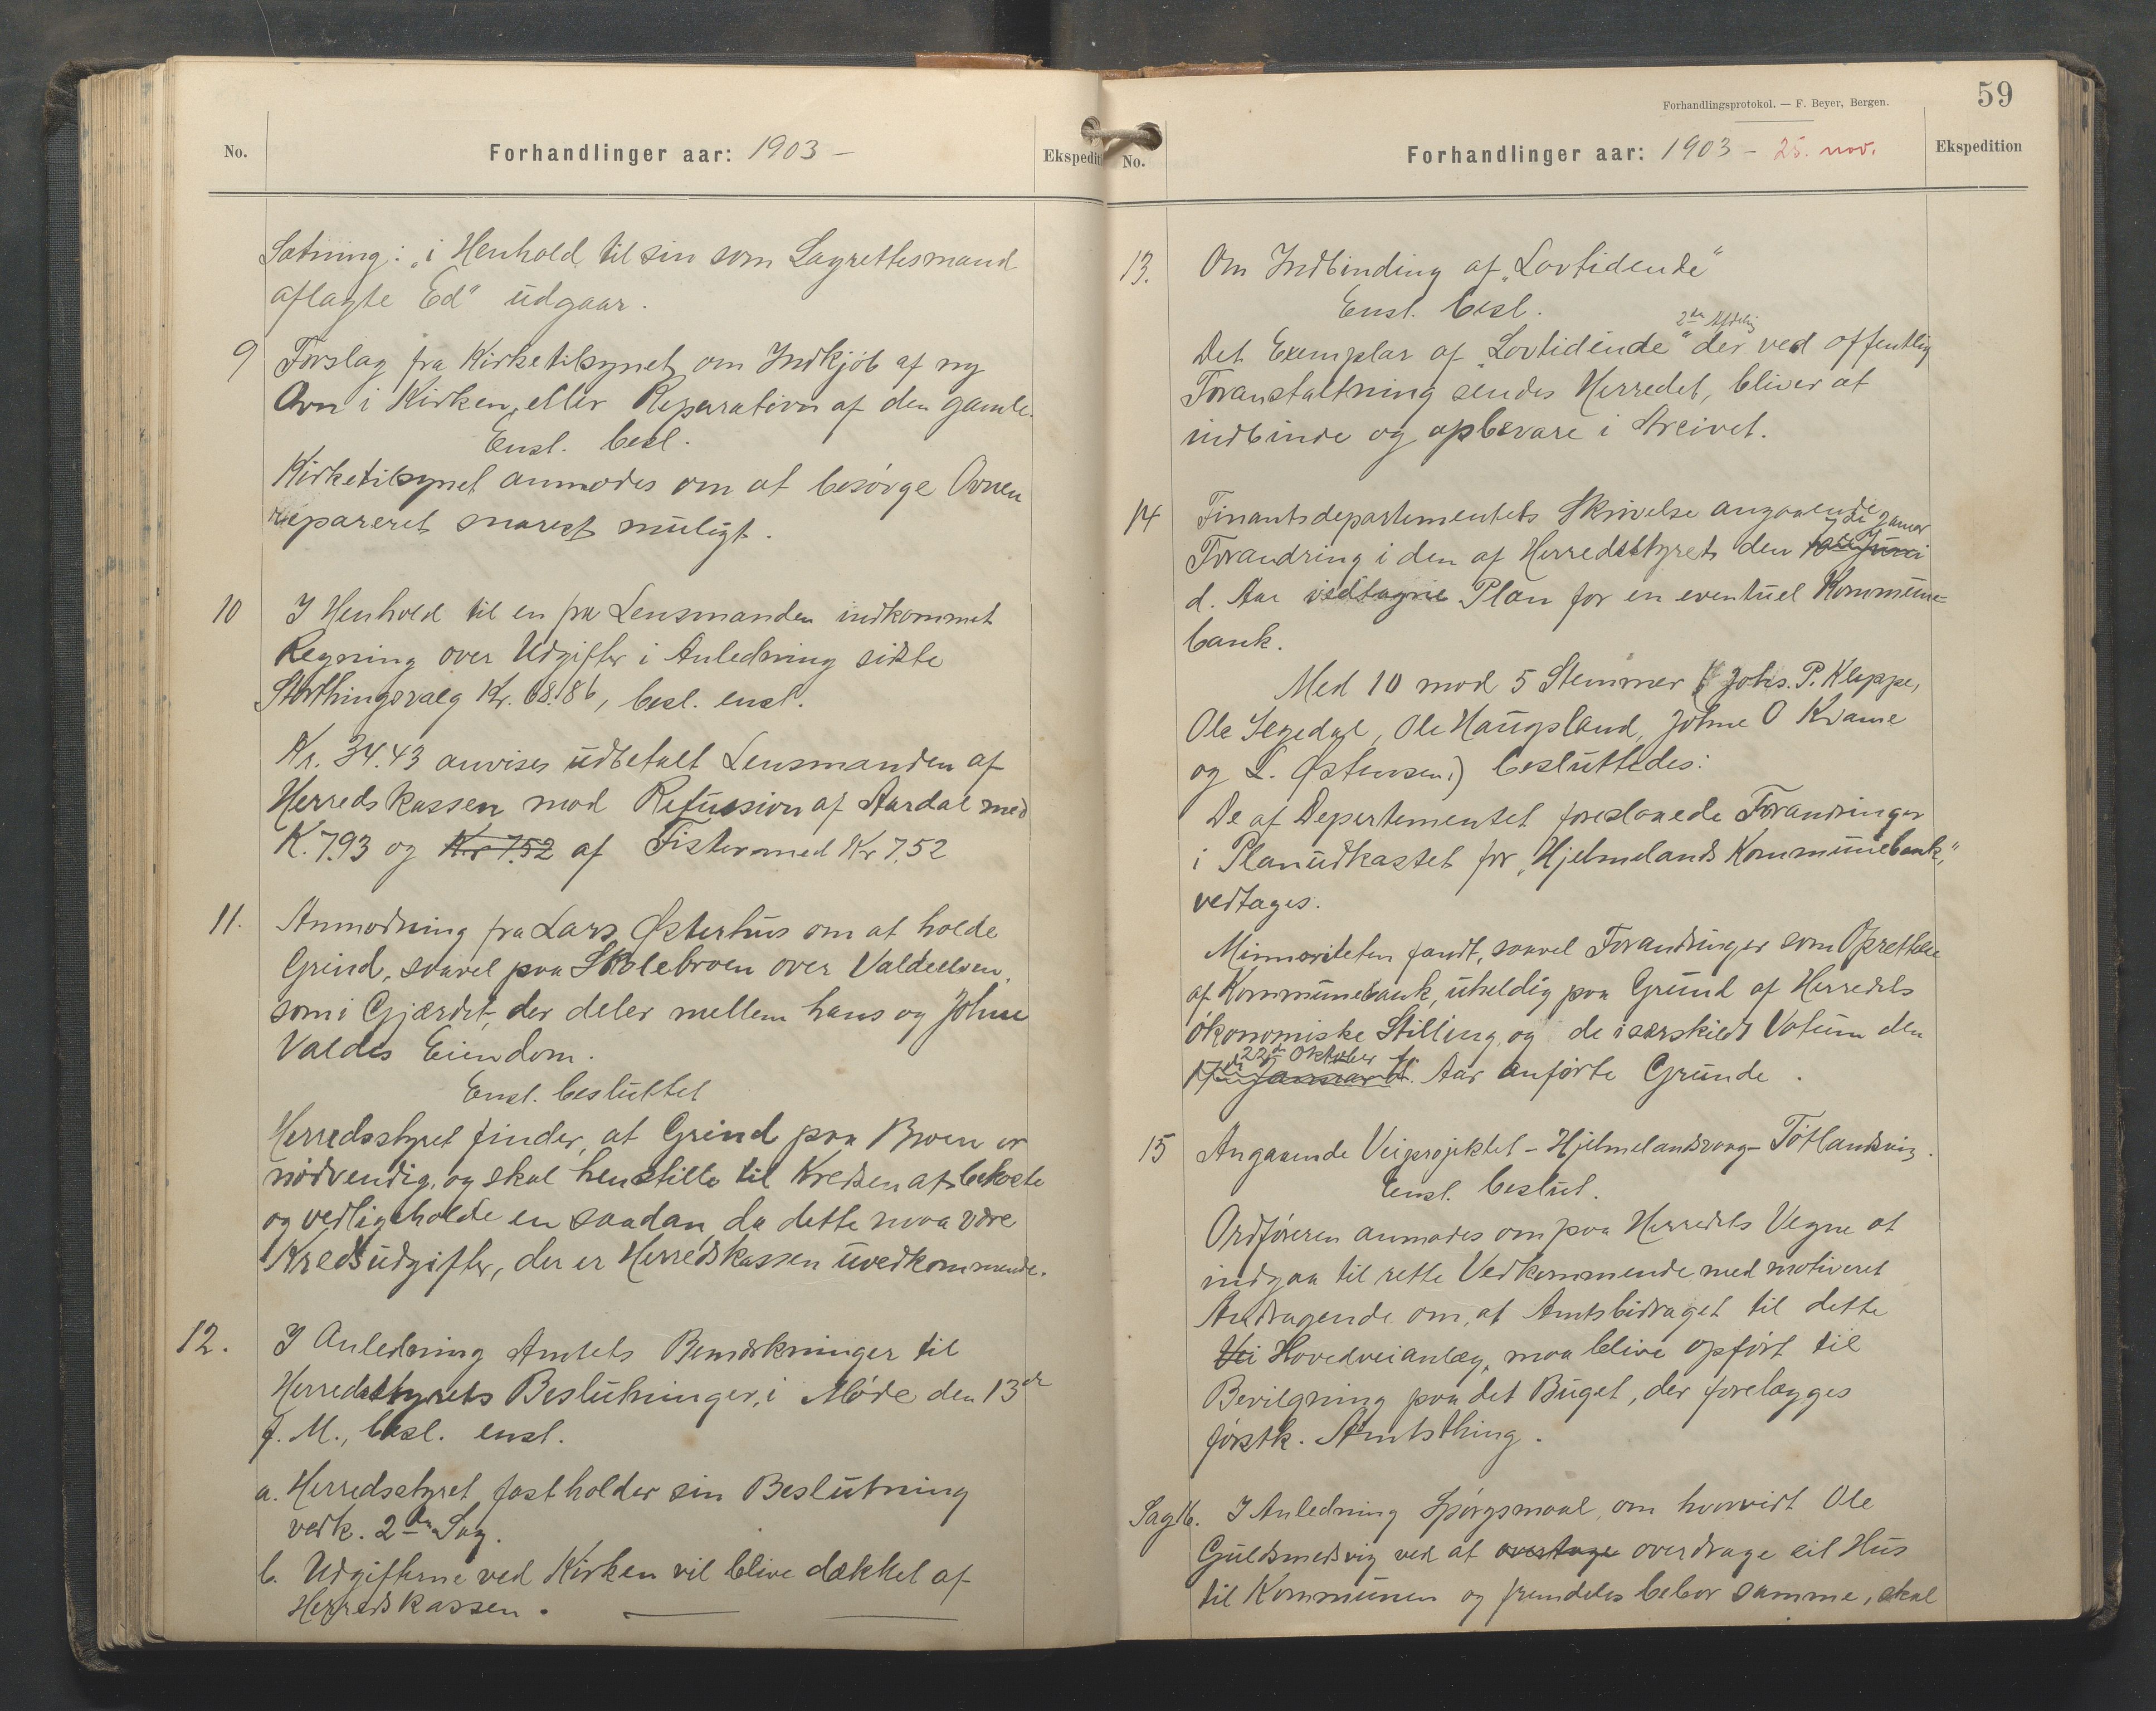 No.
Forhandlinger aar: 1903 –
Ekspedit
Sætning: „i Henhold til sin som Lagrettesmand
aflagte Ed" udgaar.
9 Forslag fra Kirketilsynet om Indkjøb af ny
Ovn i Kirken, eller Reparation af den gamle.
Enst. besl.
Kirketilsynet anmodes om at besørge Ovnen
repareret snarest muligt.
10 I Henhold til en fra Lensmanden indkommet
Regning over Udgifter i Anledning sidste
Storthingsvalg Kr. 68.86, besl. enst.
Kr. 34.43 anvises udbetalt Lensmanden af
Herredskassen mod Refusion af Aardal med
K. 7.93 og Kr 7.52 af Fister med Kr 7,52
11. Anmodning fra Lars Østerhus om at holde
Grind, saavel paa Skolebroen over Valdeelven,
som i Gjærdet, der deler mellem hans og Johne
Valdes Eiendom.
Enst. besluttet
Herredsstyret finder, at Grind paa Broen er
nødvendig, og skal henstille til Kredsen at bekoste
og vedligeholde en saadan, da dette maa være
Kredsudgifter, der er Herredskassen uvedkommende.
12. I Anledning Amtets Bemærkninger til
Herredsstyrets Beslutninger, i Møde den 13de
f. M., besl. enst.
a. Herredsstyret fastholder sin Beslutning
vedk. 2den Sag.
b. Udgifterne ved Kirken vil blive dækket af
Herredskassen.
Forhandlingsprotokol. — F. Beyer, Bergen.
59
No.
Forhandlinger aar: 1903 – 25. nov.
Ekspedition
13. Om Indbinding af „Lovtidende"
Enst. besl.
2den Afdelig
Det Exemplar af „Lovtidende" der ved offentlig
Foranstaltning sendes Herredet, bliver at
indbinde og opbevare i Arcivet.
14 Finantsdepartementets Skrivelse angaaende
Forandring i den af Herredsstyret den
d. Aar vedtagne Plan for en eventuel Kommune-
bank.
Med 10 mod 5 Stemmer (Johs. P. Kleppe,
Ole Segedal, Ole Haugsland, Johne O Kvame
og L. Østensen.) besluttedes:
De af Departementet foreslaaede Forandringer
i Planudkastet for „Hjelmelands Kommunebank,"
vedtages.
Minnoriteten fandt, saavel Forandringer som Oprettelse
af Kommunebank, uheldig paa Grund af Herredets
økonomiske Stilling, og de i særskildt Votum den
22de Oktober f.
17de Januar d. Aar anførte Grunde.
15 Angaaende Veiprojektet – Hjelmelandsvaag – Tøtlandsvig.
Enst. beslut.
Ordføreren anmodes om paa Herredets Vegne at
indgaa til rette Vedkommende med motiveret
Andragende om, at Amtsbidraget til dette
Vei Hovedveianlæg, maa blive opført til
Bevilgning paa det Buget, der forelægges
førstk. Amtsthing.
Sag 16. I Anledning Spørgsmaal, om hvorvidt Ole
Guldsmedvig ved at overtage overdrage sit Hus
til Kommunen og fremdeles bebor samme, skal